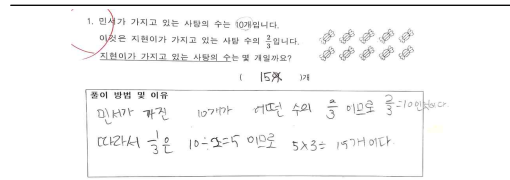 1. 민서가 가지고 있는 사탕의 수는 10개입니다.
이것은 지현이가 가지고 있는 사탕 수의 2/3입니다.
지현이가 가지고 있는 사탕의 수는 몇 개일까요?
( 15개 )개
풀이 방법 및 이유
민서가 가진 10개가 어떤 수의 2/3 이므로 2/3=10인 것이다.
따라서 1/3은 10÷2=5 이므로 5×3= 15개이다.